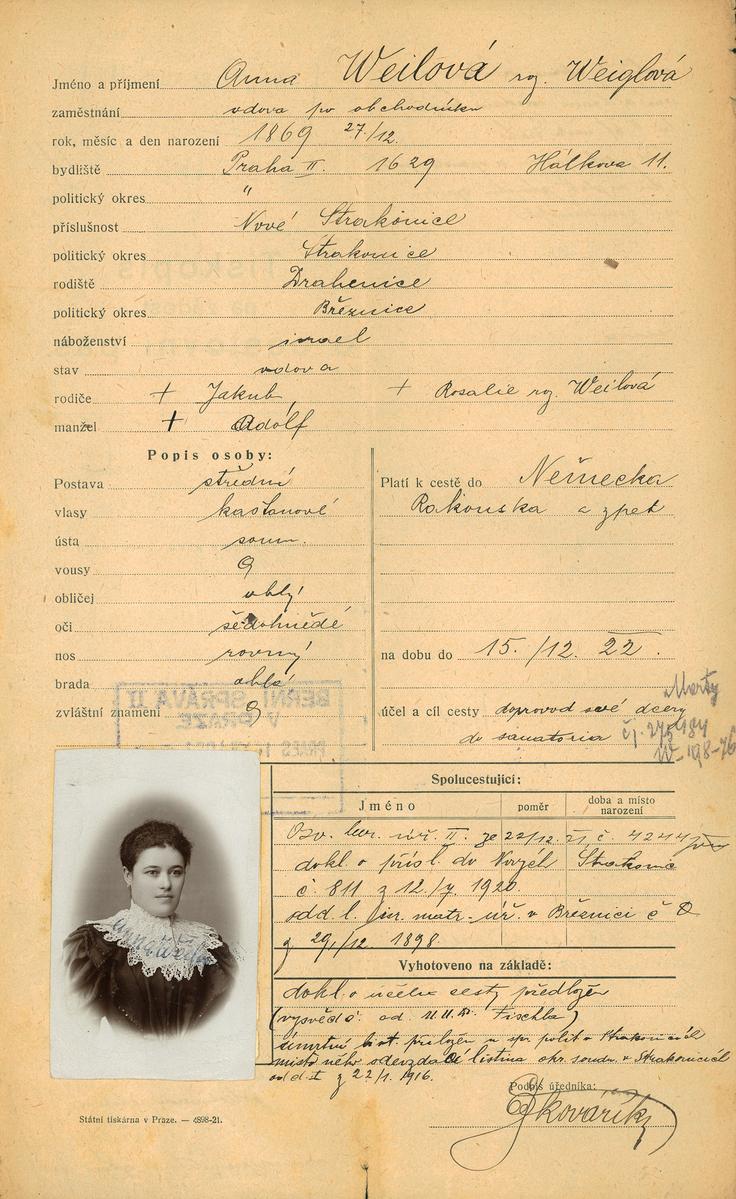 Jméno a příjmení Anna Weilová roz. Weiglová
zaměstnání vdova po obchodníku
rok, měsíc a den narození 1869 27/12.
bydliště Praha II. 1629 Hálkova 11.
politický okres "
příslušnost Nové Strakonice
politický okres Strakonice
rodiště Drahenice
politický okres Březnice
náboženství israel
stav vdova
rodiče + Jakub + Rosalie roz. Weilová
manžel + Adolf
Popis osoby:
Postava střední
vlasy kaštanové
ústa soum.
vousy 0
obličej oblý
oči šedohnědé
nos rovný
brada oblá
zvláštní znamení 0
Platí k cestě do Německa
Rakouska a zpět
na dobu do 15./12. 22.
účel a cíl cesty doprovod své dcery Marty
do sanatoria
BERNÍ SPRÁVA II
V PRAZE
Spolucestující:
Jméno poměr doba a místo narození
Osv. ber. úř. II. ze 22/12. 21 č.
dokl. o přísl. do Strakonic
č. 811 z 12./7 1920.
odd. l. matr. úř. v Březnici č 8
z 29./12. 1898.
Vyhotoveno na základě:
dokl. o účelu cesty předložen
(vysvědč. od Fischla)
úmrtní list přiložen u spr. polit. v Strakonicích
místo něho odevzdací listina okr. soudu v Strakonicích
odd. I z 22/1. 1916.
Podpis úředníka:
Škovařík
Anna Weilová
Státní tiskárna v Praze. — 4898-21.